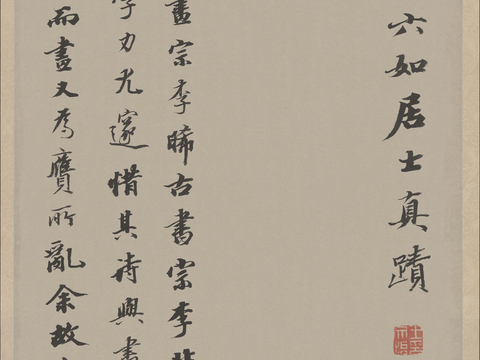 六如居士真蹟
畫宗李晞古書宗李北
學力尤邃惜其詩與書
而畫又為贋所亂余故